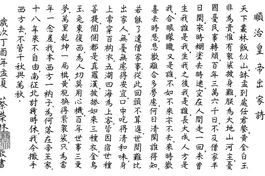 順治皇帝出家詩
天下叢林飯似山缽盂到處任君餐黃金白玉
非為貴惟有袈裟披身難朕為大地山河主憂
國憂民事轉煩百年三萬六千日不及僧家半
日閒來時糊塗去時迷空在人間走一回未曾
生我誰是我生我之後我是誰長大成人方是
我合眼朦朧又是誰不如不來亦不去來時歡
喜去時悲悲歡離合多勞慮何日清閒誰得知
若能了達僧家事從此回頭不算遲世間難比
出家人無憂無慮得安宜口中吃得清和味身
上常穿百衲衣五湖四海為上客皆因宿世種
菩提個個都是真羅漢披搭如來三種衣金烏
玉兔東復西為人切莫用心機百年世事三更
夢萬里乾坤一局棋黃袍換得紫袈裟只為當
年一念差我本西方一衲子為何落在帝王家
十八年來不自由南征北討幾時休我今撒手
西方去不管千秋與萬秋
歲次丁酉年孟夏 蔡榮林 書